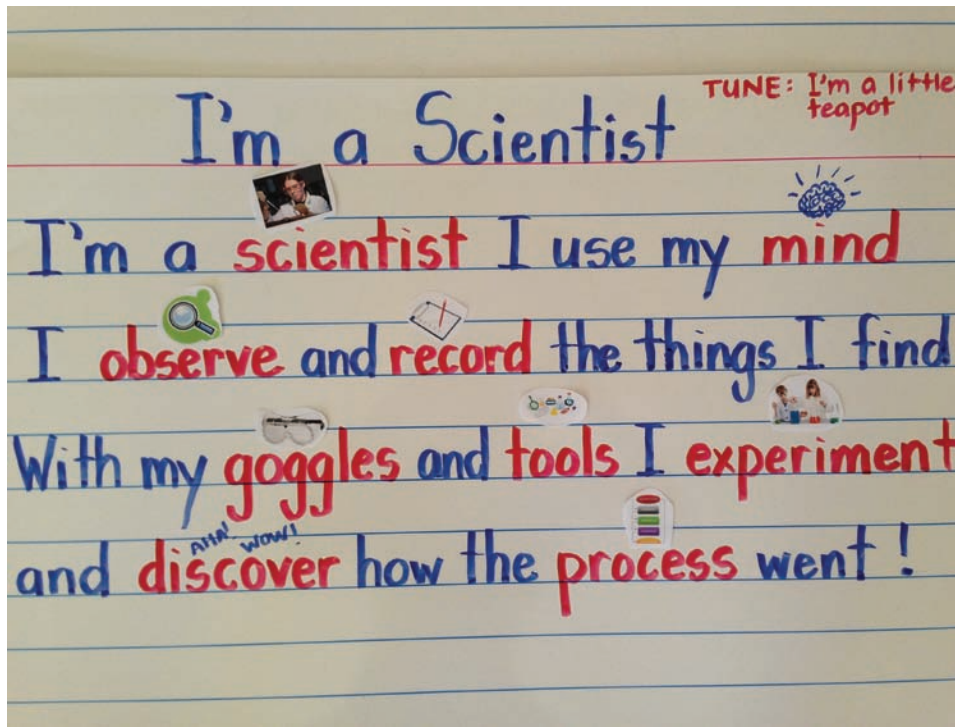 TUNE: I'm a little
teapot
I'm a Scientist
I'm a scientist I use my mind
I observe and record the things I find
With my goggles and tools I experiment
AHA! WOW!
and discover how the process went!